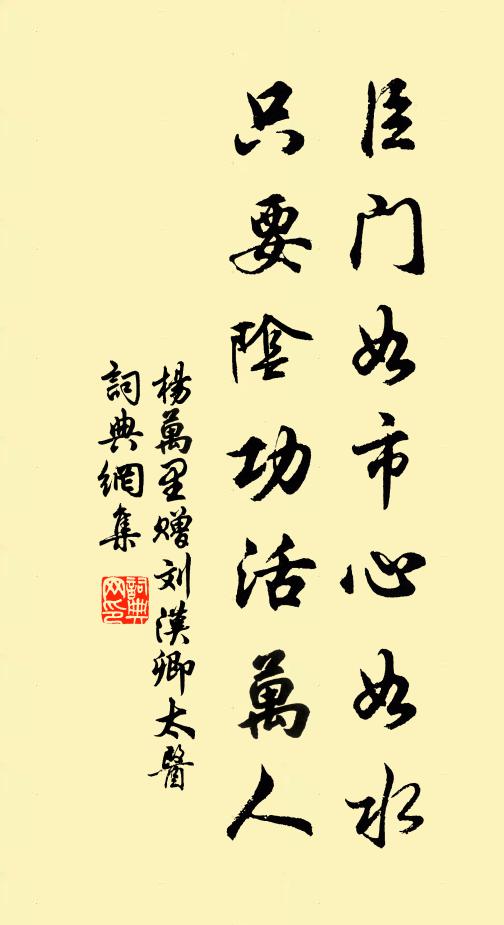 臣门如市心如水
只要陰功活萬人
楊萬里赠刘漢卿太醫
詞典網集
詞典网印